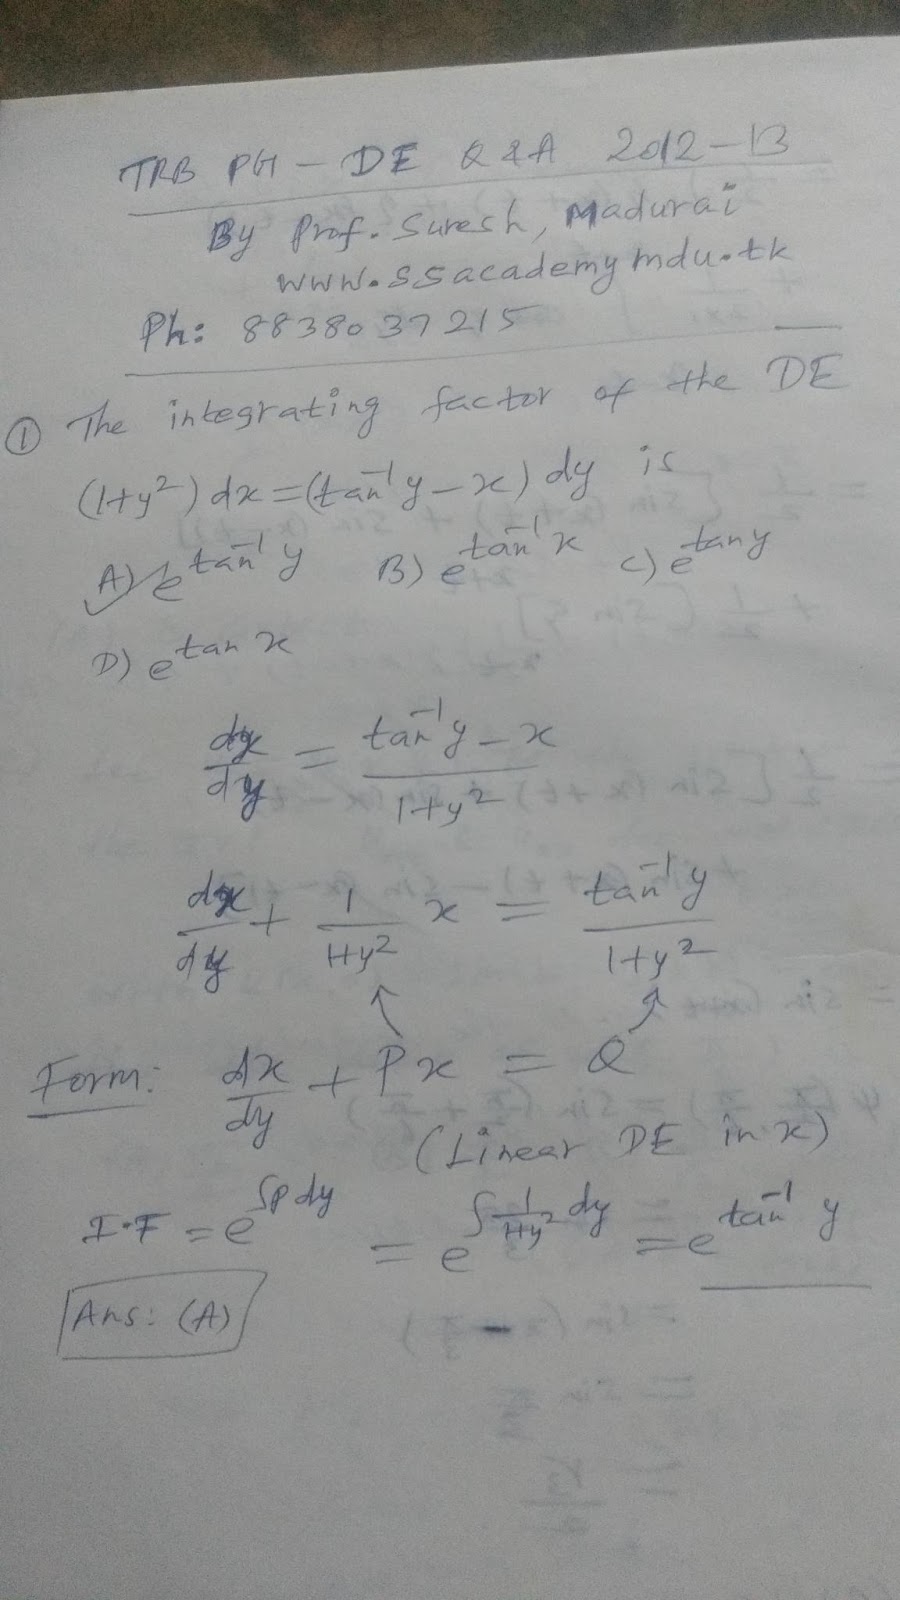 TRB PG - DE Q & A 2012-13
By Prof. Suresh, Madurai
www.ssacademymdu.tk
Ph: 8838037215
① The integrating factor of the DE
(1+y²) dx = (tan⁻¹y - x) dy is
A) e^{tan⁻¹ y} B) e^{tan⁻¹ x} C) e^{tan y}
D) e^{tan x}
dx/dy = (tan⁻¹y - x)/(1+y²)
dx/dy + 1/(1+y²) x = tan⁻¹y/(1+y²)
Form: dx/dy + Px = Q
(Linear DE in x)
I.F = e^{∫P dy} = e^{∫1/(1+y²) dy} = e^{tan⁻¹ y}
Ans: (A)